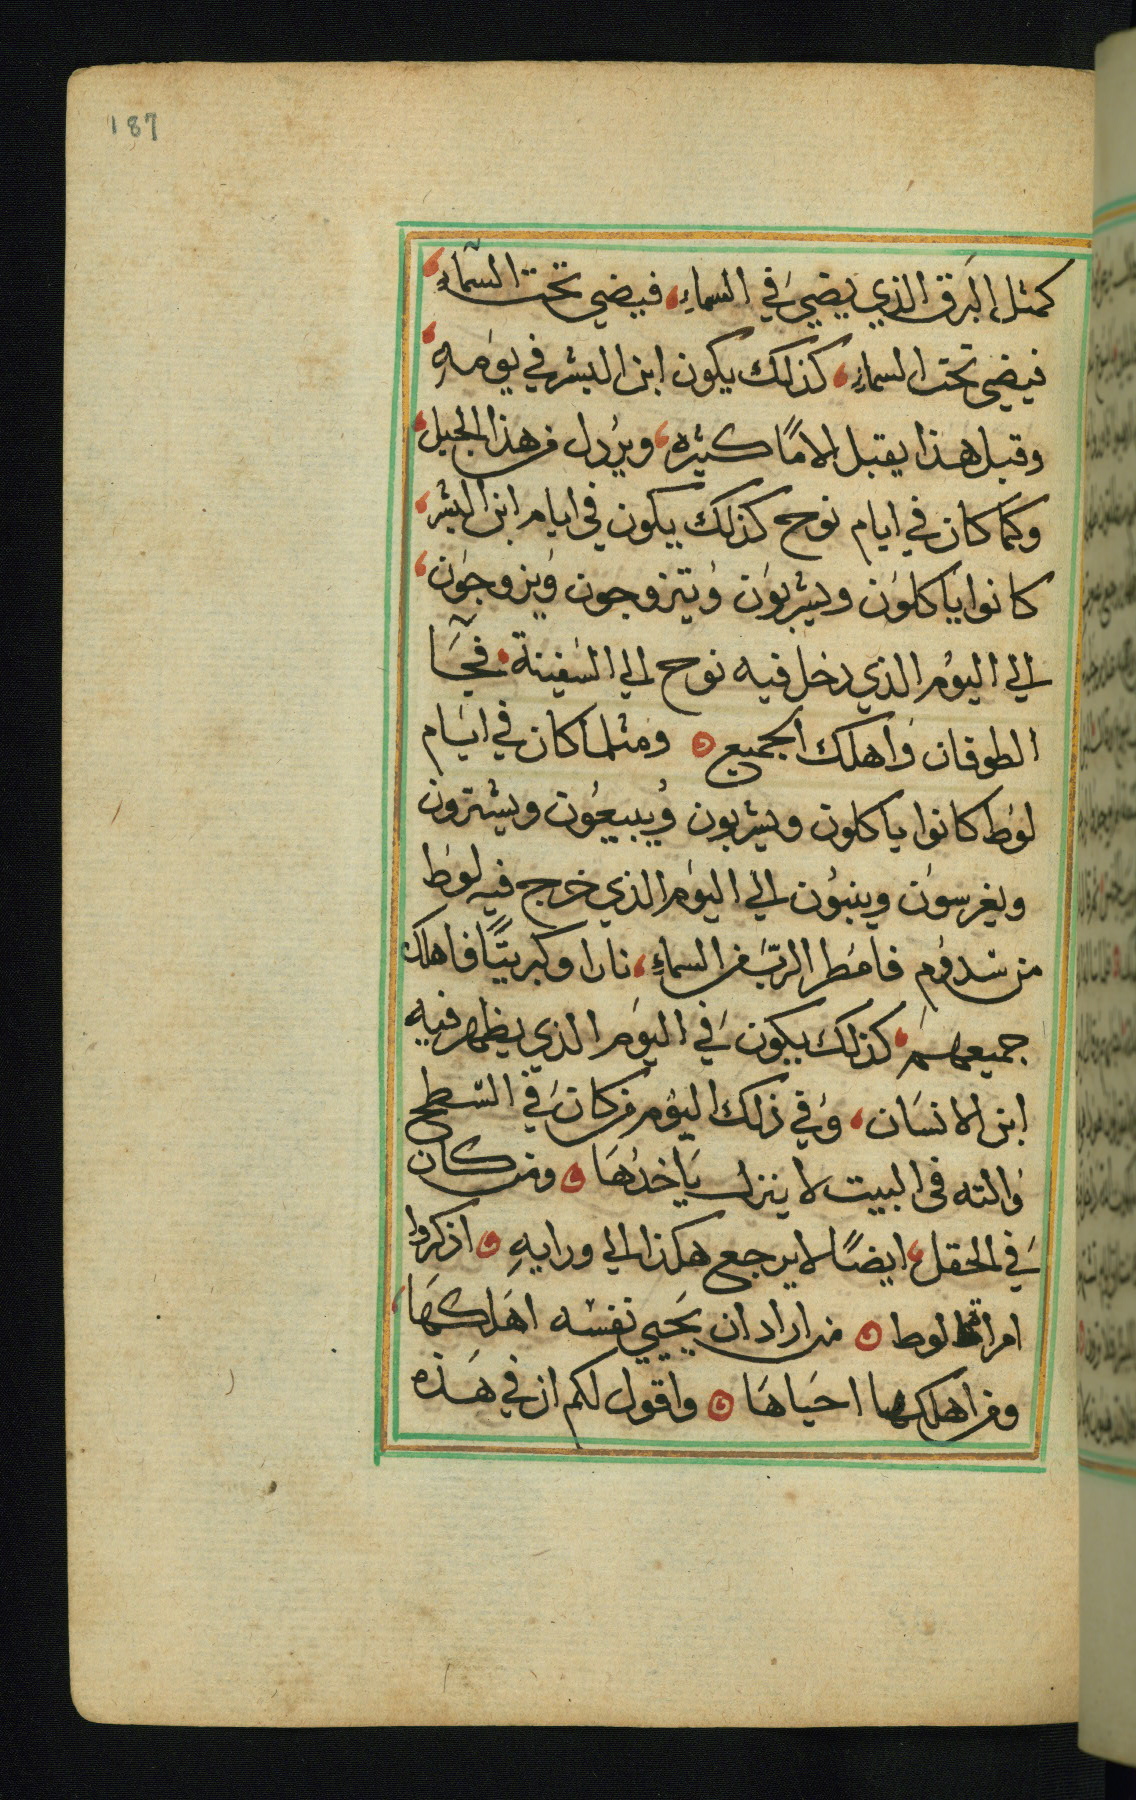 187
كمثل البرق الذي يضيي في السماءِ، فيضي تحت السَّماءِ،
فيضي تحت السماءِ، كذلك يكون ابن البشر في يومهِ،
وقبل هذا يقبل الامًا كثيره، ويرُدل من هذا الجيل،
وكما كان في ايام نوح كذلك يكون في ايام ابن البشر،
كانوا ياكلون ويشربون ويتزوجون ويزوجون،
الي اليوم الذي دخل فيه نوح الي السفينة، فجآ
الطوفان واهلك الجميع ۞ ومثلما كان في ايام
لوط كانوا ياكلون ويشربون ويبيعون ويشترون
ويغرسون وينبون الي اليوم الذي خرج فيه لوط
من سدوم فامطر الربّ من السماءِ، نارا وكبريتًا فاهلك
جميعهم، كذلك يكون في اليوم الذي يظهر فيه
ابن الانسان، وفي ذلك اليوم من كان في السطح
والته في البيت لا ينزل ياخدها ۞ ومن كان
في الحقل، ايضًا لا يرجع هكذا الي ورايهِ ۞ اذكروا
امراة لوط ۞ من اراد ان يحيي نفسه اهلكها،
ومن اهلكها احياها ۞ واقول لكم ان في هذه